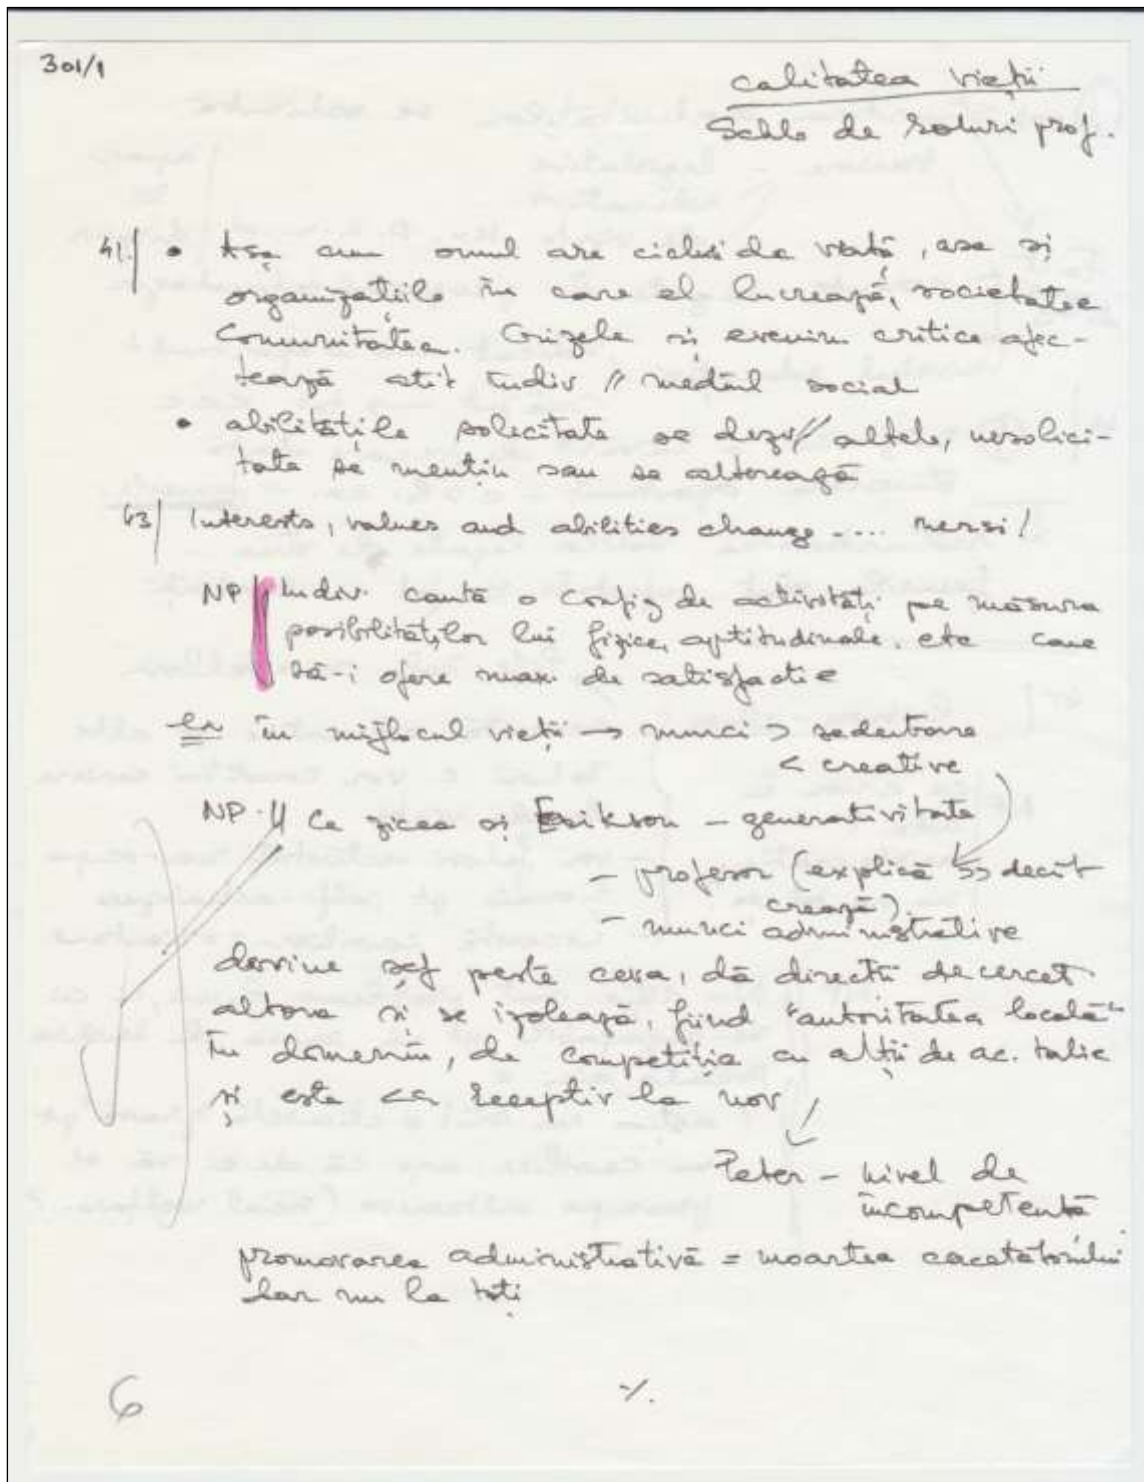 301/1
calitatea vieții
Schb de roluri prof.
41. • Așa cum omul are cicluri de viață, asa si
organizațiile în care el lucrează, societatea
Comunitatea. Crizele si evenim critice afec-
tează atit indiv // mediul social
• abilitățile solicitate se dezv // altele, nesolici-
tate se mentin sau se altereagă
43 Interests, values and abilities change .... mersi!
NP Indiv. caută o config de activități pe măsura
posibilităților lui fizice, aptitudinale. etc care
să-i ofere max. de satisfactie
în mijlocul vieții → munci > sedentare
< creative
NP. Ce zicea și Erikson – generativitate
– profesor (explică >> decît
crează)
– munci administrative
devine sef peste ceva, dă directii de cercet.
altora și se izolează, fiind "autoritatea locală"
în domeniu, de competiția cu alții de ac. talie
și este receptiv la nou
Peter – nivel de
incompetentă
promovarea administrativă = moartea
Dar nu la toți
6
·/.